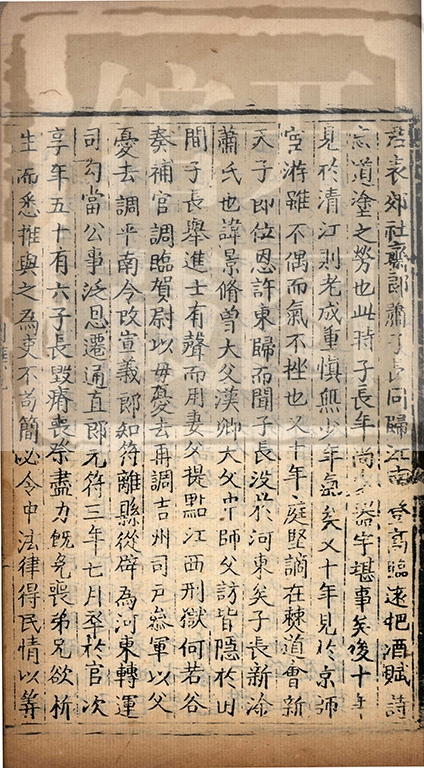 君表郊社齋郎蕭子長同歸江南登高臨遠把酒賦詩
忘道塗之勞也此時子長年尚少器宇堪事矣後十年
見於清江則老成重慎無少年氣矣又十年見於京師
宦游雖不偶而氣不挫也又十年庭堅謫在棘道會新
天子即位恩許東歸而聞子長沒於河東矣子長新淦
蕭氏也諱景脩曾大父漢卿大父中師父訪皆隱於田
間子長舉進士有聲而用妻父提點江西刑獄何若谷
奏補官調臨賀尉以毋憂去再調吉州司戶參軍以父
憂去調平南令改宣義郎知符離縣從辟為河東轉運
司勾當公事泛恩遷通直郎元符三年七月卒於官次
享年五十有六子長毀瘠喪祭盡力旣免喪弟兄欲析
生而悉推與之為吏不苟簡必令中法律得民情以筭